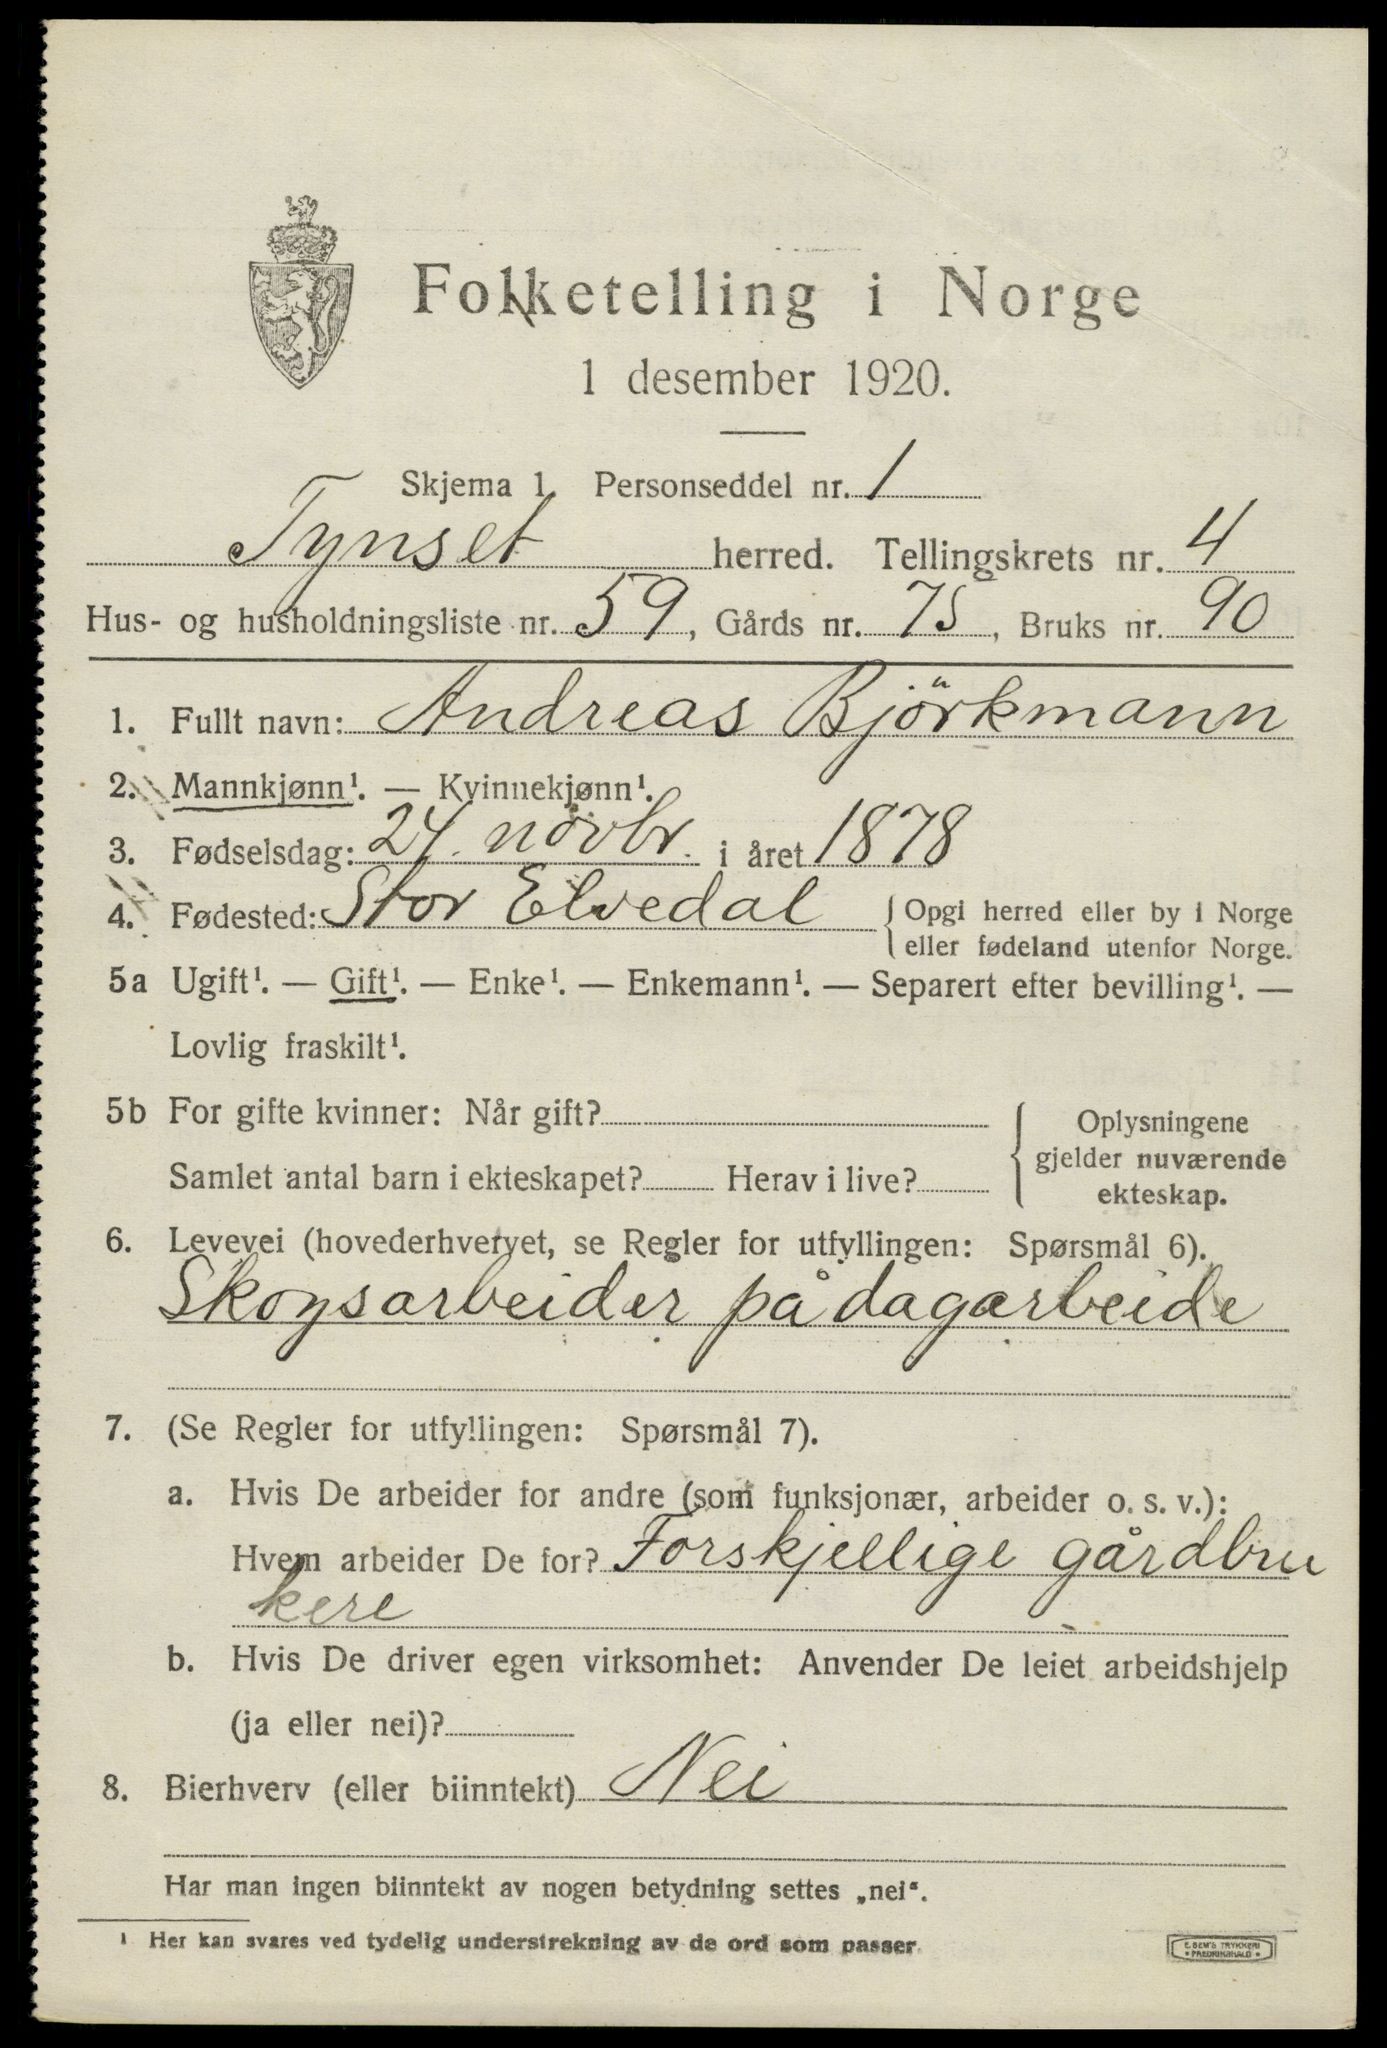 Folketelling i Norge
1 desember 1920.
Skjema 1 Personseddel nr. 1
Tynset herred. Tellingskrets nr. 4
Hus- og husholdningsliste nr. 59, Gårds nr. 75, Bruks nr. 90
1. Fullt navn: Andreas Björkmann
2. Mannkjønn¹. — Kvinnekjønn¹.
3. Fødselsdag: 24. novbr. i året 1878
4. Fødested: Stor Elvedal { Opgi herred eller by i Norge
eller fødeland utenfor Norge.
5a Ugift¹. — Gift¹. — Enke¹. — Enkemann¹. — Separert efter bevilling¹. —
Lovlig fraskilt¹.
5b For gifte kvinner: Når gift?
Samlet antal barn i ekteskapet? Herav i live?
Oplysningene
gjelder nuværende
ekteskap.
6. Levevei (hovederhvervet, se Regler for utfyllingen: Spørsmål 6).
Skogsarbeider på dagarbeide
7. (Se Regler for utfyllingen: Spørsmål 7).
a. Hvis De arbeider for andre (som funksjonær, arbeider o. s. v.):
Hvem arbeider De for? Forskjellige gårdbru
kere
b. Hvis De driver egen virksomhet: Anvender De leiet arbeidshjelp
(ja eller nei)?
8. Bierhverv (eller biinntekt) Nei
Har man ingen biinntekt av nogen betydning settes „nei“.
¹ Her kan svares ved tydelig understrekning av de ord som passer
E. SEM'S TRYKKERI
FREDRIKSHALD